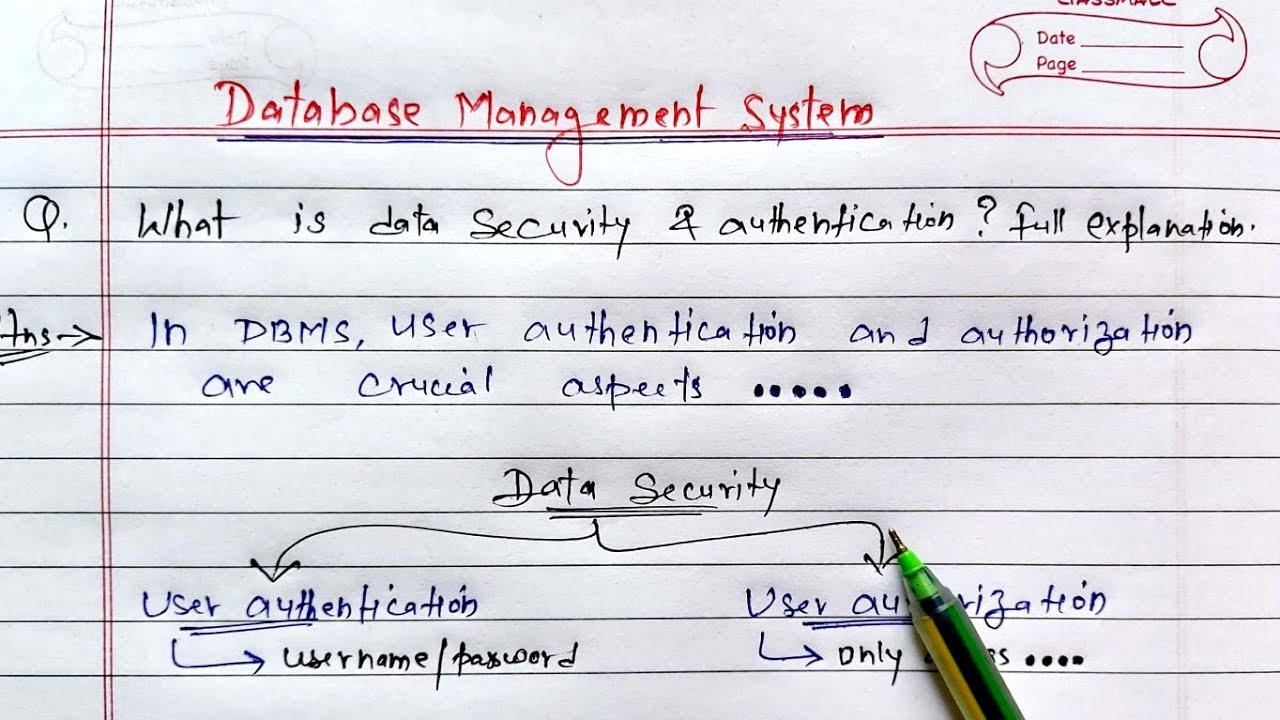 Date
Page
Database Management System
Q. What is data Security & authentication? full explanation.
Ans → In DBMS, User authentication and authorization
are crucial aspects •••••
Data Security
User authentication
User
→ username/password
→ only ••••